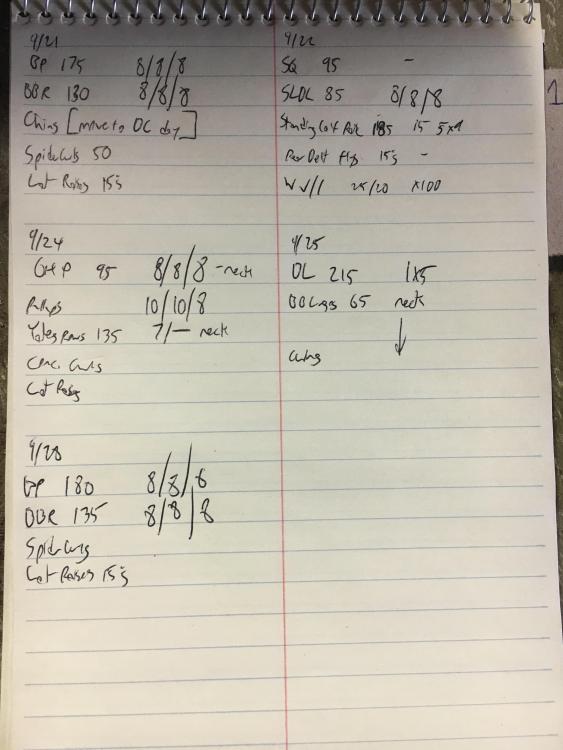 9/21
BP 175 8/8/8
BBR 130 8/8/8
Chins [move to DL day]
Spider Curls 50
Lat Raises 15's
9/22
SQ 95 -
SLDL 85 8/8/8
Standing Calf 185 15 5x9
Rear Delt Flys 15's -
25/20 x100
9/24
OHP 95 8/8/8 - neck
Pullups 10/10/8
Yates Rows 135 7/— neck
Conc. Curls
Lat Raises
9/25
DL 215 1x5
BB Lunges 65 neck
9/28
BP 180 8/8/6
BBR 135 8/8/8
Spider Curls
Lat Raises 15's
1